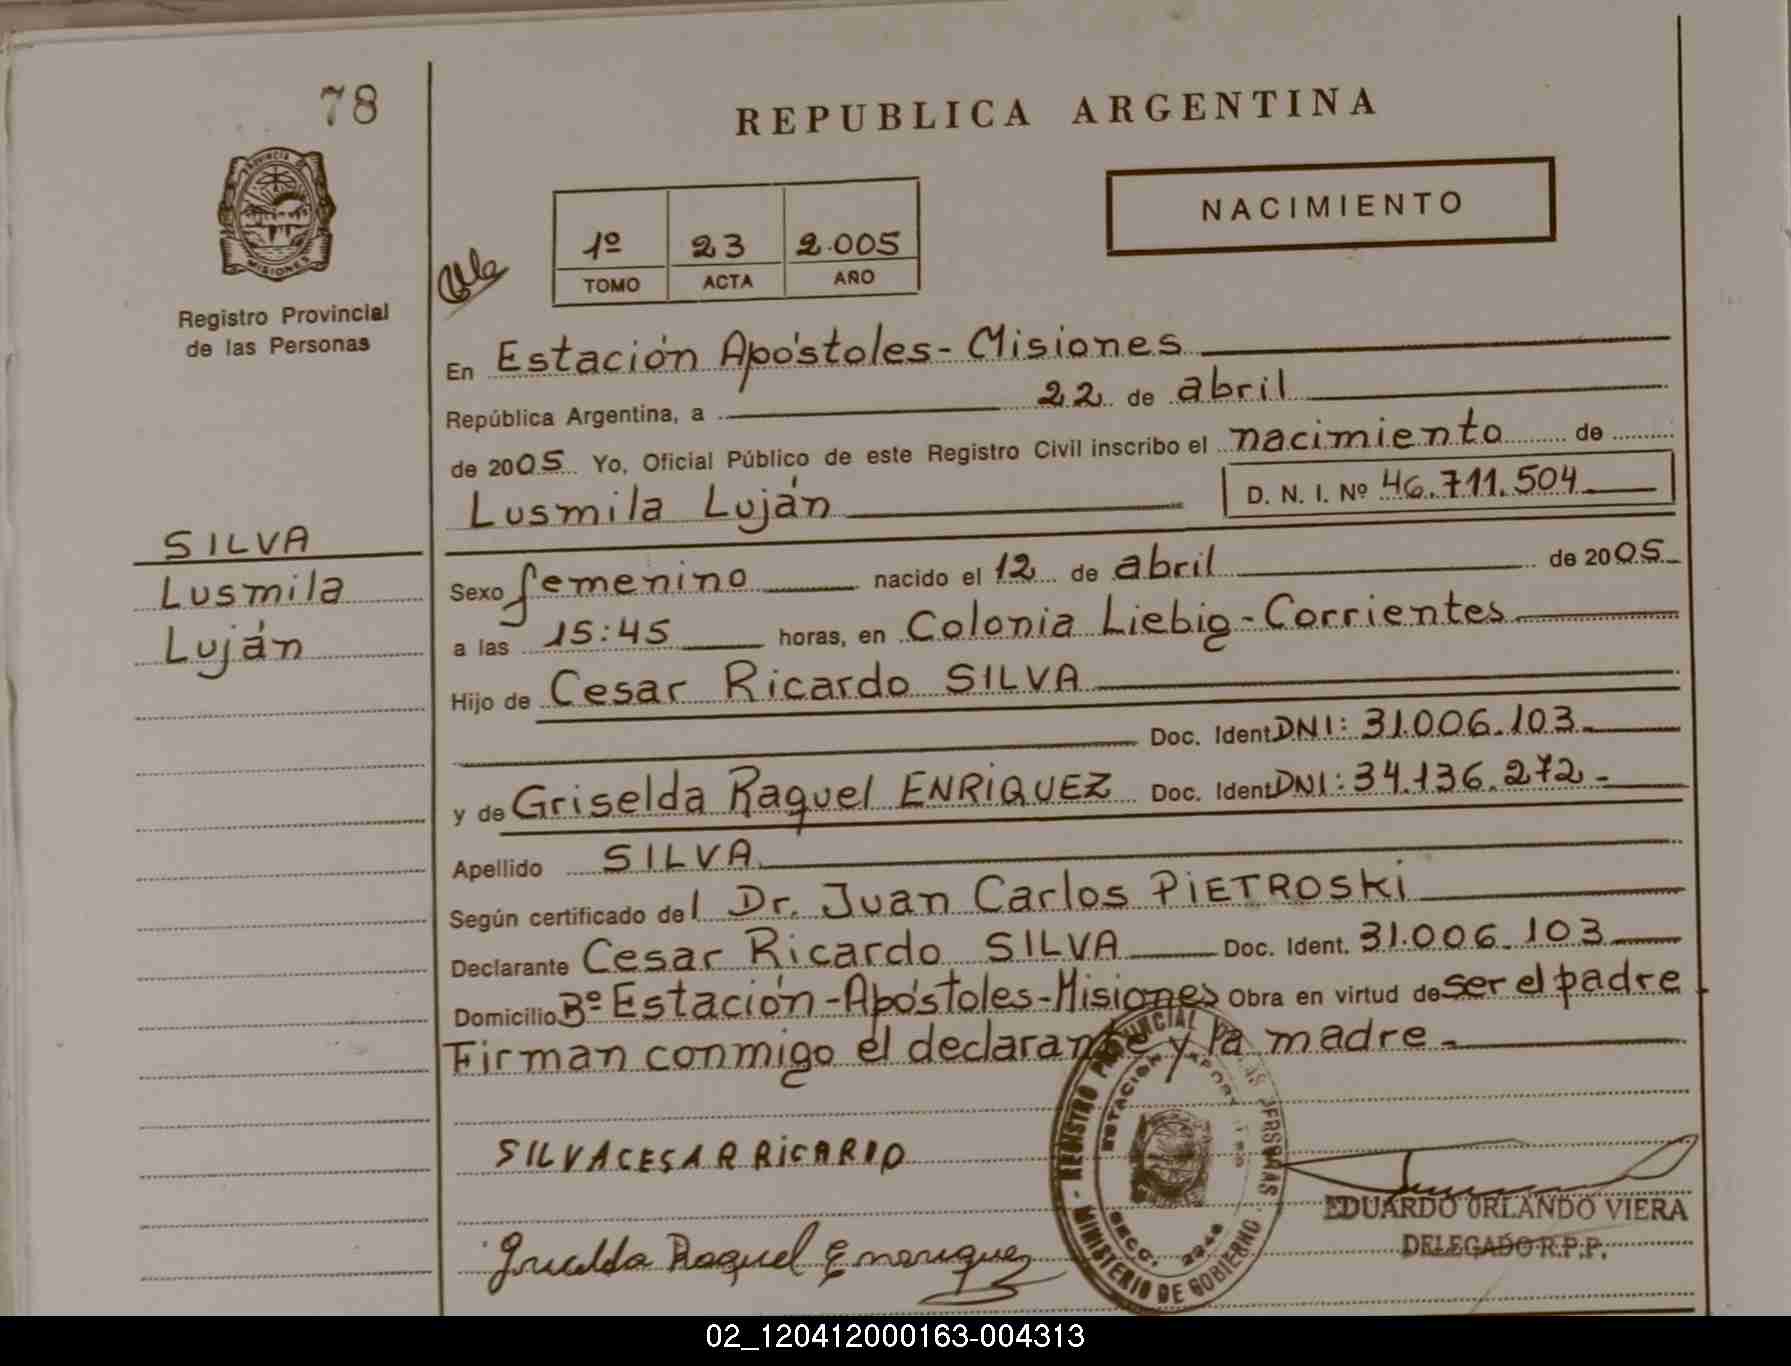 78
REPUBLICA ARGENTINA
PROVINCIA DE
MISIONES
Registro Provincial
de las Personas
NACIMIENTO
1º 23 2.005
TOMO ACTA AÑO
En Estación Apóstoles - Misiones
República Argentina, a 22 de abril
de 2005 Yo, Oficial Público de este Registro Civil inscribo el nacimiento de
Lusmila Luján D. N. I. Nº 46.711.504
SILVA
Lusmila
Luján
Sexo femenino nacido el 12 de abril de 2005
a las 15:45 horas, en Colonia Liebig - Corrientes
Hijo de Cesar Ricardo SILVA
Doc. Ident DNI: 31.006.103
y de Griselda Raquel ENRIQUEZ Doc. Ident DNI: 34.136.272.-
Apellido SILVA
Según certificado del Dr. Juan Carlos PIETROSKI
Declarante Cesar Ricardo SILVA Doc. Ident. 31.006.103
Domicilio Bº Estación - Apóstoles - Misiones Obra en virtud de ser el padre
Firman conmigo el declarante y la madre.-
SILVA CESAR RICARDO
Griselda Raquel Enriquez
REGISTRO PROVINCIAL DE LAS PERSONAS
MINISTERIO DE GOBIERNO
ESTACION APOSTOLES
SECC.
EDUARDO ORLANDO VIERA
DELEGADO R.P.P.
02_120412000163-004313